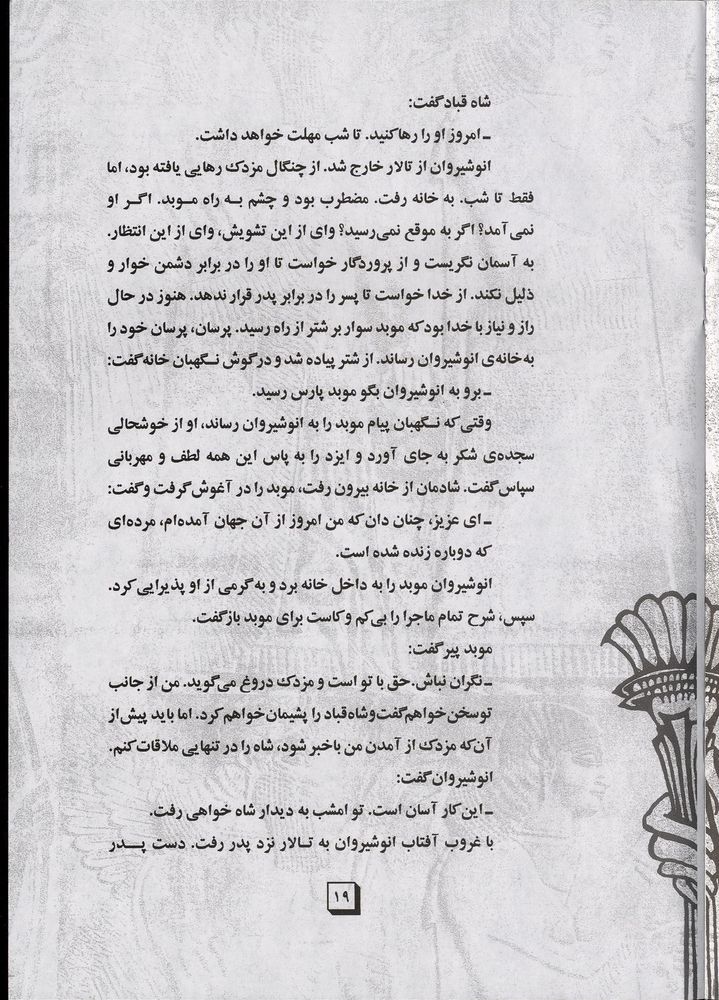 شاه قباد گفت:
ـ امروز او را رها کنید. تا شب مهلت خواهد داشت.
انوشیروان از تالار خارج شد. از چنگال مزدک رهایی یافته بود، اما
فقط تا شب. به خانه رفت. مضطرب بود و چشم به راه موبد. اگر او
نمی‌آمد؟ اگر به موقع نمی‌رسید؟ وای از این تشویش، وای از این انتظار.
به آسمان نگریست و از پروردگار خواست تا او را در برابر دشمن خوار و
ذلیل نکند. از خدا خواست تا پسر را در برابر پدر قرار ندهد. هنوز در حال
راز و نیاز با خدا بود که موبد سوار بر شتر از راه رسید. پرسان، پرسان خود را
به خانه‌ی انوشیروان رساند. از شتر پیاده شد و در گوش نگهبان خانه گفت:
ـ برو به انوشیروان بگو موبد پارس رسید.
وقتی که نگهبان پیام موبد را به انوشیروان رساند، او از خوشحالی
سجده‌ی شکر به جای آورد و ایزد را به پاس این همه لطف و مهربانی
سپاس گفت. شادمان از خانه بیرون رفت، موبد را در آغوش گرفت و گفت:
ـ ای عزیز، چنان دان که من امروز از آن جهان آمده‌ام، مرده‌ای
که دوباره زنده شده است.
انوشیروان موبد را به داخل خانه برد و به گرمی از او پذیرایی کرد.
سپس، شرح تمام ماجرا را بی‌کم و کاست برای موبد بازگفت.
موبد پیر گفت:
ـ نگران نباش. حق با تو است و مزدک دروغ می‌گوید. من از جانب
تو سخن خواهم گفت و شاه قباد را پشیمان خواهم کرد. اما باید پیش از
آن‌که مزدک از آمدن من باخبر شود، شاه را در تنهایی ملاقات کنم.
انوشیروان گفت:
ـ این کار آسان است. تو امشب به دیدار شاه خواهی رفت.
با غروب آفتاب انوشیروان به تالار نزد پدر رفت. دست پدر
۱۹